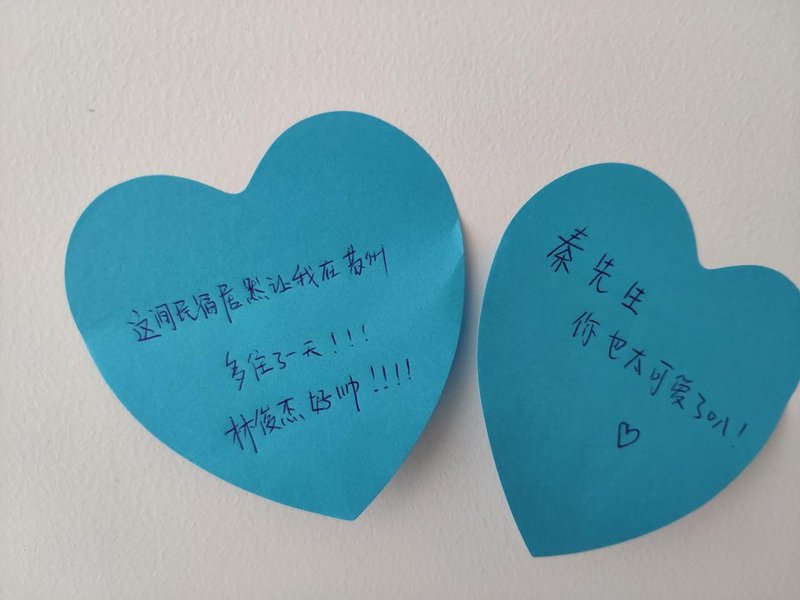 这间民宿居然让我在苏州
多住了一天！！！
林俊杰好帅！！！！
秦先生
你也太可爱了叭！
♡